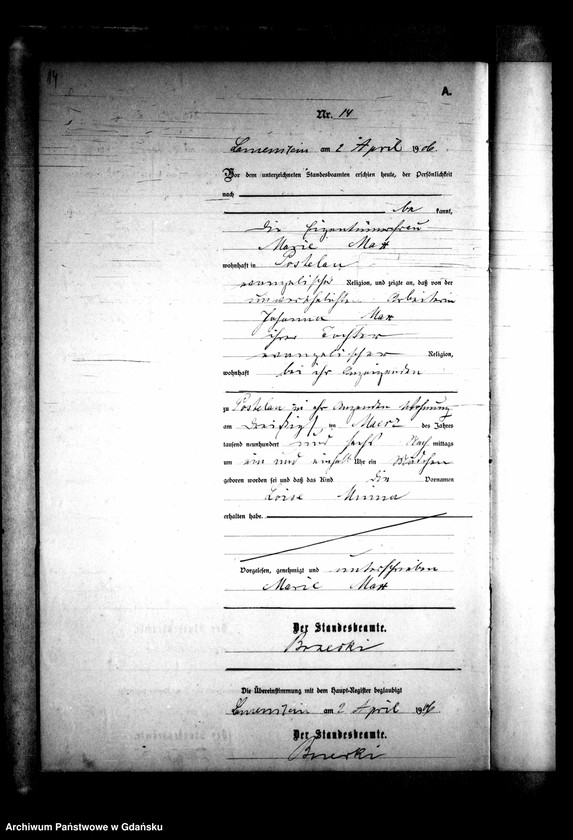 14
A.
Nr. 14
am 2 April 1906
Vor dem unterzeichneten Standesbeamten erschien heute, der Persönlichkeit
nach
be kannt,
die Eigentümerfrau
Marie
wohnhaft in Postelau
evangelischer Religion, und zeigte an, daß von der
unverehelichten Arbeiterin
Johanna
ihrer Tochter
evangelischer Religion,
wohnhaft bei ihr Anzeigenden
zu Postelau in ihr Wohnung
am ten Maerz des Jahres
tausend neunhundert und sechs Nach mittags
um ein und einhalb Uhr ein Mädchen
geboren worden sei und daß das Kind die Vornamen
Minna
erhalten habe.
Vorgelesen, genehmigt und unterschrieben
Marie
Der Standesbeamte.
Die Übereinstimmung mit dem Haupt-Register beglaubigt
am 2 April 1906
Der Standesbeamte.
Archiwum Państwowe w Gdańsku